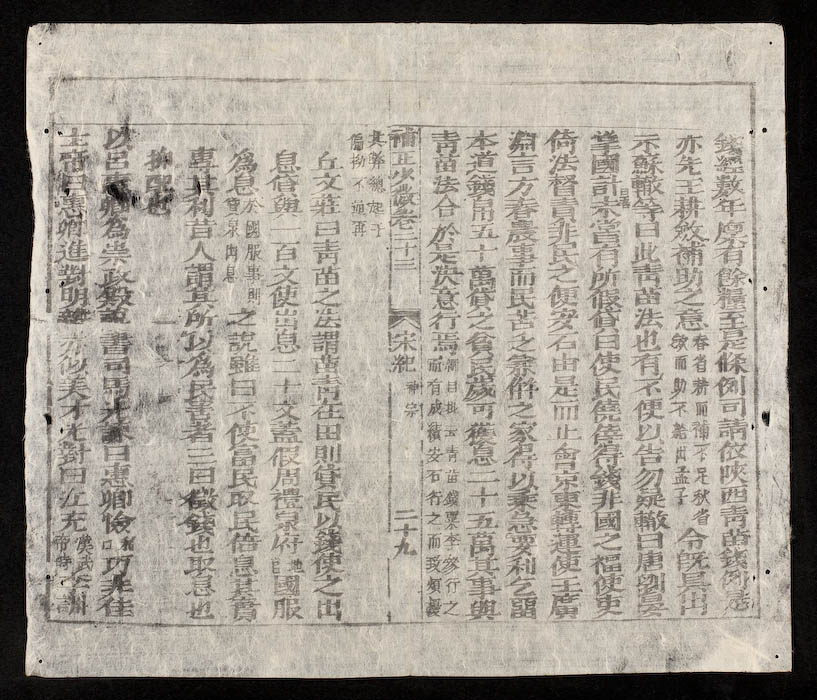 錢經數年廩有餘糧至是條例司請倣陝西靑苗錢例是
亦先王耕斂補助之意春省耕而補不足秋省斂而助不給出孟子令旣具出
示蘇轍等曰此靑苗法也有不便以告勿疑轍曰唐劉晏
掌國計未嘗有所假貸曰使民僥倖得錢非國之福使吏
倚法督責非民之便安石由是而止會京東轉運使王廣
淵言方春農事而民苦乏兼倂之家得以乘急要利乞留
本道錢帛五十萬貸之貧民歲可獲息二十五萬其事與
靑苗法合於是決意行焉靑苗錢李參行之而有成績安石行之而致煩擾
補正少微卷二十三 宋紀 神宗 二十九
其弊總起于偏拗不通再
丘文莊曰靑苗之法謂苗靑在田則貸民以錢使之出
息貸與一百文使出息二十文蓋假周禮泉府國服
為息於國服事之說雖曰不使富民取民倍息其實
專其利昔人謂其所以為民害者三曰徵錢也取息也
抑配也
以呂惠卿為崇政殿說書司馬光諫曰惠卿憸巧非佳
士帝曰惠卿進對明辨亦似美才光對曰江充漢武帝時李訓